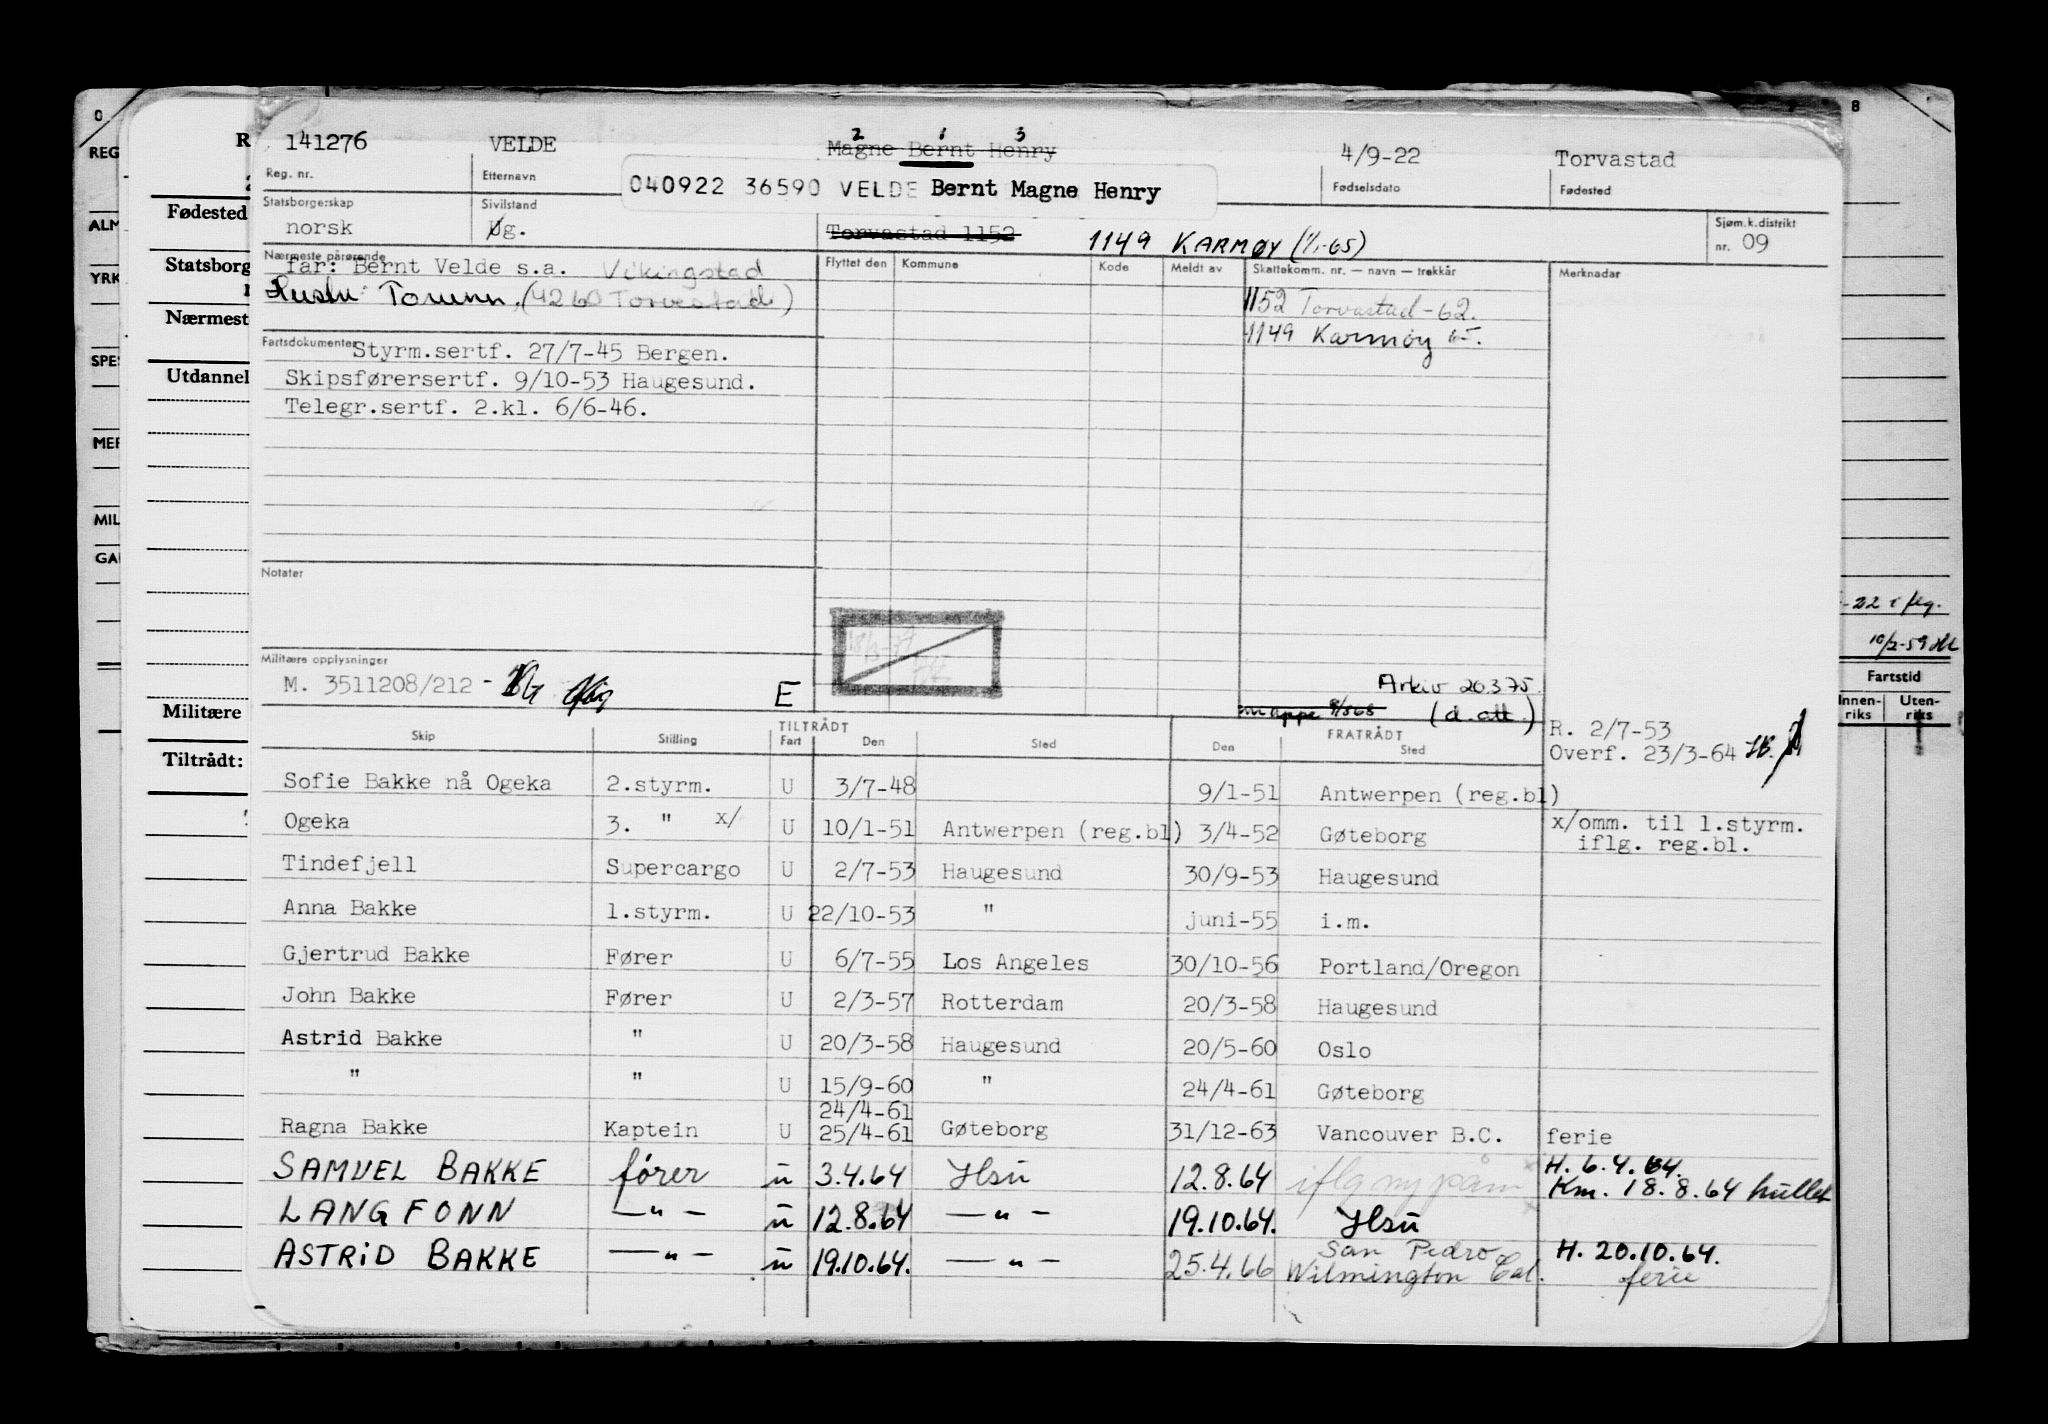 141276 VELDE Magne Bernt Henry 4/9-22 Torvastad
2 1 3
Reg. nr. Etternavn Fødselsdato Fødested
040922 36590 VELDE Bernt Magne Henry
Statsborgerskap Sivilstand Sjøm.k.distrikt
norsk g. Torvastad 1152 1149 KARMØY (1/1-65) nr. 09
Nærmeste pårørende Flyttet den Kommune Kode Meldt av Skattekomm. nr. — navn — trekkår Merknader
far: Bernt Velde s.a. Vikingstad
Hustru: Torunn, (4260 Torvestad)
1152 Torvastad-62.
1149 Karmøy 65.
Fartsdokumenter Styrm.sertf. 27/7-45 Bergen.
Skipsførersertf. 9/10-53 Haugesund.
Telegr.sertf. 2.kl. 6/6-46.
Notater
Militære opplysninger
M. 3511208/212 - E
Arkiv 20375.
mappe (d. att.)
Skip Stilling TILTRÅDT Fart Den Sted FRATRÅDT Den Sted
R. 2/7-53
Overf. 23/3-64
Sofie Bakke nå Ogeka 2.styrm. U 3/7-48 9/1-51 Antwerpen (reg.bl)
Ogeka 3. " x/ U 10/1-51 Antwerpen (reg.bl) 3/4-52 Gøteborg x/omm. til 1.styrm.
iflg. reg.bl.
Tindefjell Supercargo U 2/7-53 Haugesund 30/9-53 Haugesund
Anna Bakke 1.styrm. U 22/10-53 " juni-55 i.m.
Gjertrud Bakke Fører U 6/7-55 Los Angeles 30/10-56 Portland/Oregon
John Bakke Fører U 2/3-57 Rotterdam 20/3-58 Haugesund
Astrid Bakke " U 20/3-58 Haugesund 20/5-60 Oslo
" " U 15/9-60 " 24/4-61 Gøteborg
24/4-61
Ragna Bakke Kaptein U 25/4-61 Gøteborg 31/12-63 Vancouver B.C. ferie
SAMUEL BAKKE fører u 3.4.64 Hsu 12.8.64 iflg ny påm H. 6.4.64.
Km. 18.8.64 hullet
LANGFONN —"— u 12.8.64 —"— 19.10.64. Hsu
ASTRID BAKKE —"— u 19.10.64. —"— 25.4.66 San Pedro H. 20.10.64.
Wilmington Cal. ferie
0
REG
ALM
YRK
SPES
MER
MIL
GAI
R
Fødested
Statsborg
Nærmest
Utdannel
Militære
Tiltrådt:
8
-22 i flg.
10/2-59
Fartstid
Innen-
riks
Uten-
riks